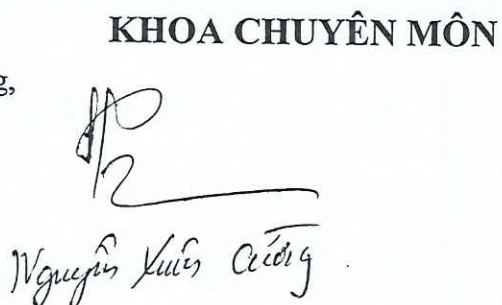 KHOA CHUYÊN MÔN
g,
Nguyễn Xuân Cường